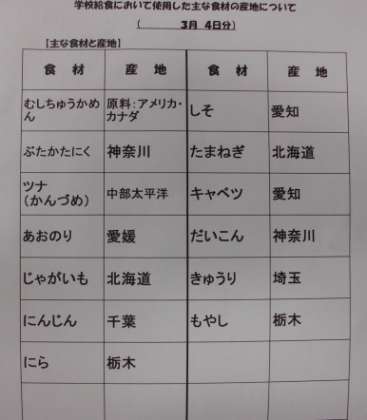 学校給食において使用した主な食材の産地について
(　　　3月 4日分)
【主な食材と産地】
食 材 産 地 食 材 産 地
むしちゅうかめん 原料:アメリカ・カナダ しそ 愛知
ぶたかたにく 神奈川 たまねぎ 北海道
ツナ(かんづめ) 中部太平洋 キャベツ 愛知
あおのり 愛媛 だいこん 神奈川
じゃがいも 北海道 きゅうり 埼玉
にんじん 千葉 もやし 栃木
にら 栃木